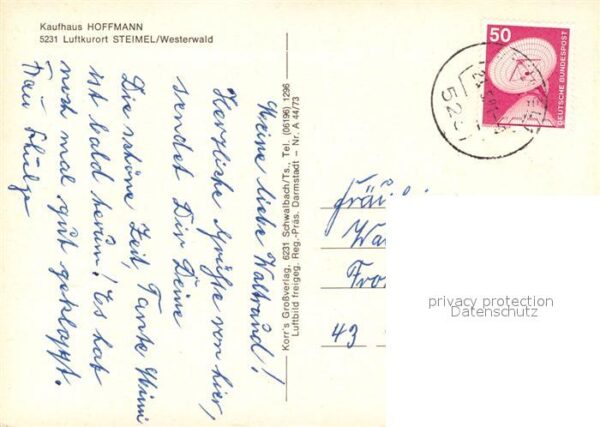 Kaufhaus HOFFMANN
5231 Luftkurort STEIMEL/Westerwald
Meine liebe Waltraud!
Herzliche Grüße von hier,
sendet Dir Deine
Tante Mimi
Die schöne Zeit,
ist bald herum! Es hat
noch mal gut geklappt.
Frau
Korr's Großverlag, 6231 Schwalbach/Ts., Tel. (06196) 1296
Luftbild freigeg. Reg.-Präs. Darmstadt – Nr. A 44/73
50
DEUTSCHE BUNDESPOST
5231
Fräu
Wa
Fro
43
privacy protection
Datenschutz